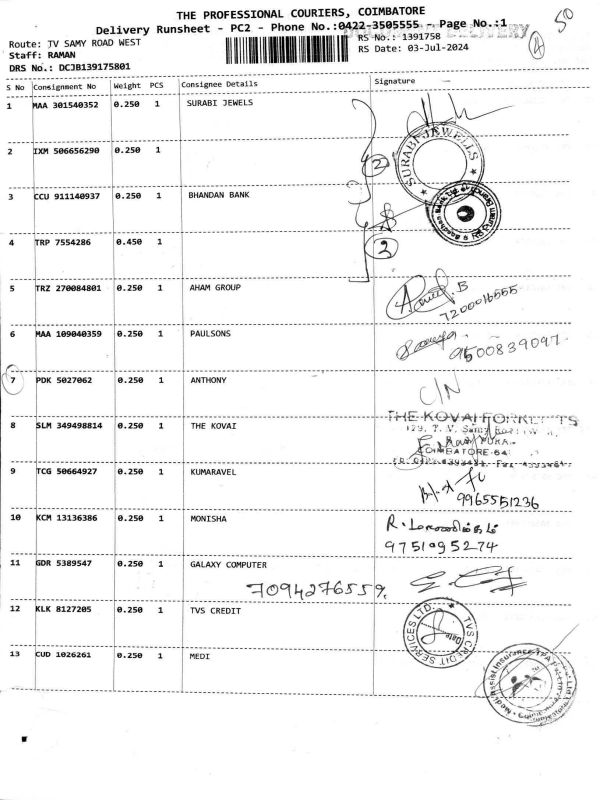 THE PROFESSIONAL COURIERS, COIMBATORE
Delivery Runsheet - PC2 - Phone No.:0422-3505555 - Page No.:1
50
4
Route: TV SAMY ROAD WEST
RS No.: 1391758
Staff: RAMAN
RS Date: 03-Jul-2024
DRS No.: DCJB139175801
S No Consignment No Weight PCS Consignee Details Signature
1 MAA 301540352 0.250 1 SURABI JEWELS
SURABI JEWELLS
2 IXM 506656290 0.250 1
2
3 CCU 911140937 0.250 1 BHANDAN BANK
4 TRP 7554286 0.450 1
2
5 TRZ 270084801 0.250 1 AHAM GROUP
7200016555
6 MAA 109040359 0.250 1 PAULSONS
9500839097
7 PDK 5027062 0.250 1 ANTHONY
C/N
8 SLM 349498814 0.250 1 THE KOVAI
THE KOVAI FORKLIFTS
129, T. V. Samy
COIMBATORE-64
9 TCG 50664927 0.250 1 KUMARAVEL
9965551236
10 KCM 13136386 0.250 1 MONISHA
9751095274
11 GDR 5389547 0.250 1 GALAXY COMPUTER
7094276559
12 KLK 8127205 0.250 1 TVS CREDIT
TVS CREDIT SERVICES LTD.
13 CUD 1026261 0.250 1 MEDI